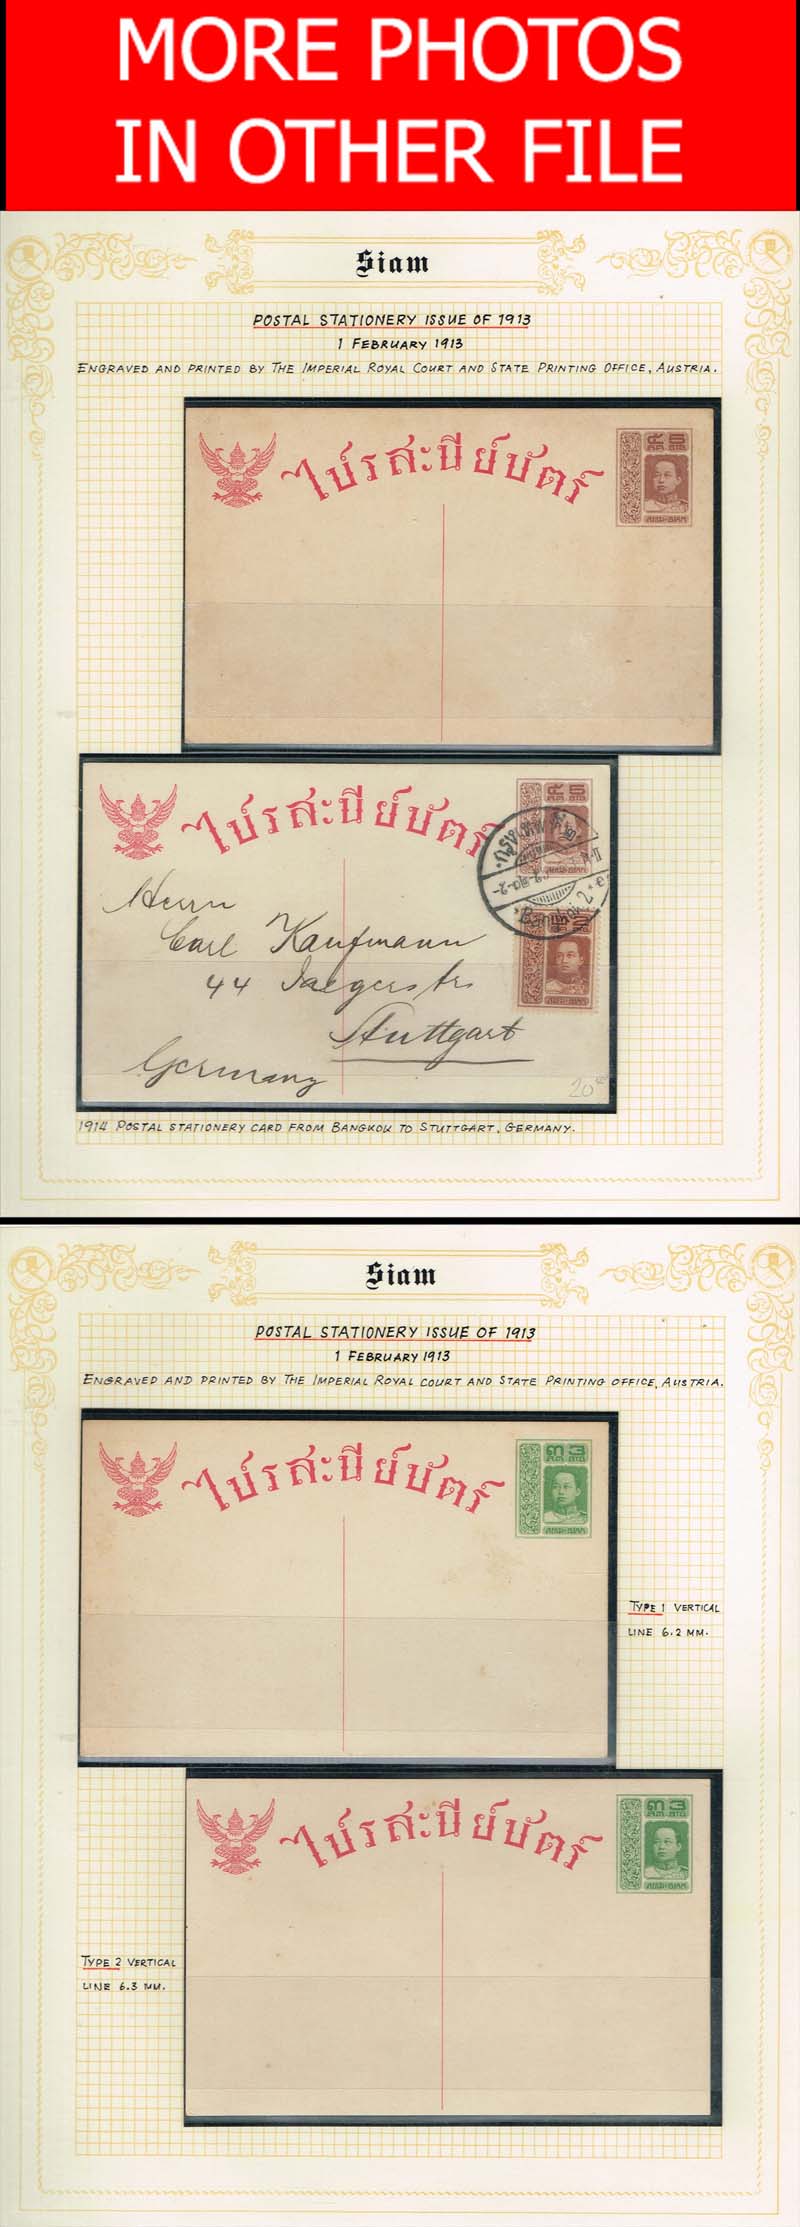 MORE PHOTOS
IN OTHER FILE
Siam
POSTAL STATIONERY ISSUE OF 1913
1 FEBRUARY 1913
ENGRAVED AND PRINTED BY THE IMPERIAL ROYAL COURT AND STATE PRINTING OFFICE, AUSTRIA.
ไปรสะนียบัตร์
ไปรสะนียบัตร์
Herrn
Carl Kaufmann
44 Jaegerstr
Stuttgart
Germany
Bangkok 2
20
1914 POSTAL STATIONERY CARD FROM BANGKOK TO STUTTGART, GERMANY.
Siam
POSTAL STATIONERY ISSUE OF 1913
1 FEBRUARY 1913
ENGRAVED AND PRINTED BY THE IMPERIAL ROYAL COURT AND STATE PRINTING OFFICE, AUSTRIA.
ไปรสะนียบัตร์
TYPE 1 VERTICAL
LINE 6.2 MM.
ไปรสะนียบัตร์
TYPE 2 VERTICAL
LINE 6.3 MM.